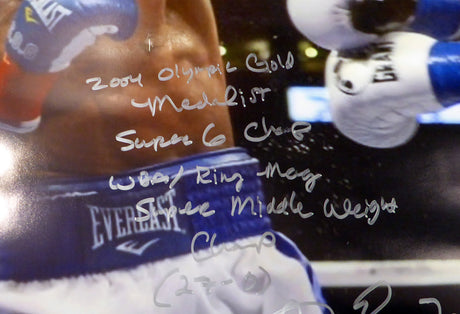 2004 Olympic Gold
Medalist
Super 6 Champ
WBA/Ring Mag
Super Middle Weight
Champ
(27-0)
EVERLAST
GRANT